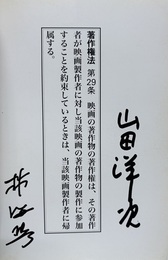 著作権法　第29条　映画の著作物の著作権は、その著作
者が映画製作者に対し当該映画の著作物の製作に参加
することを約束しているときは、当該映画製作者に帰
属する。
山田洋次